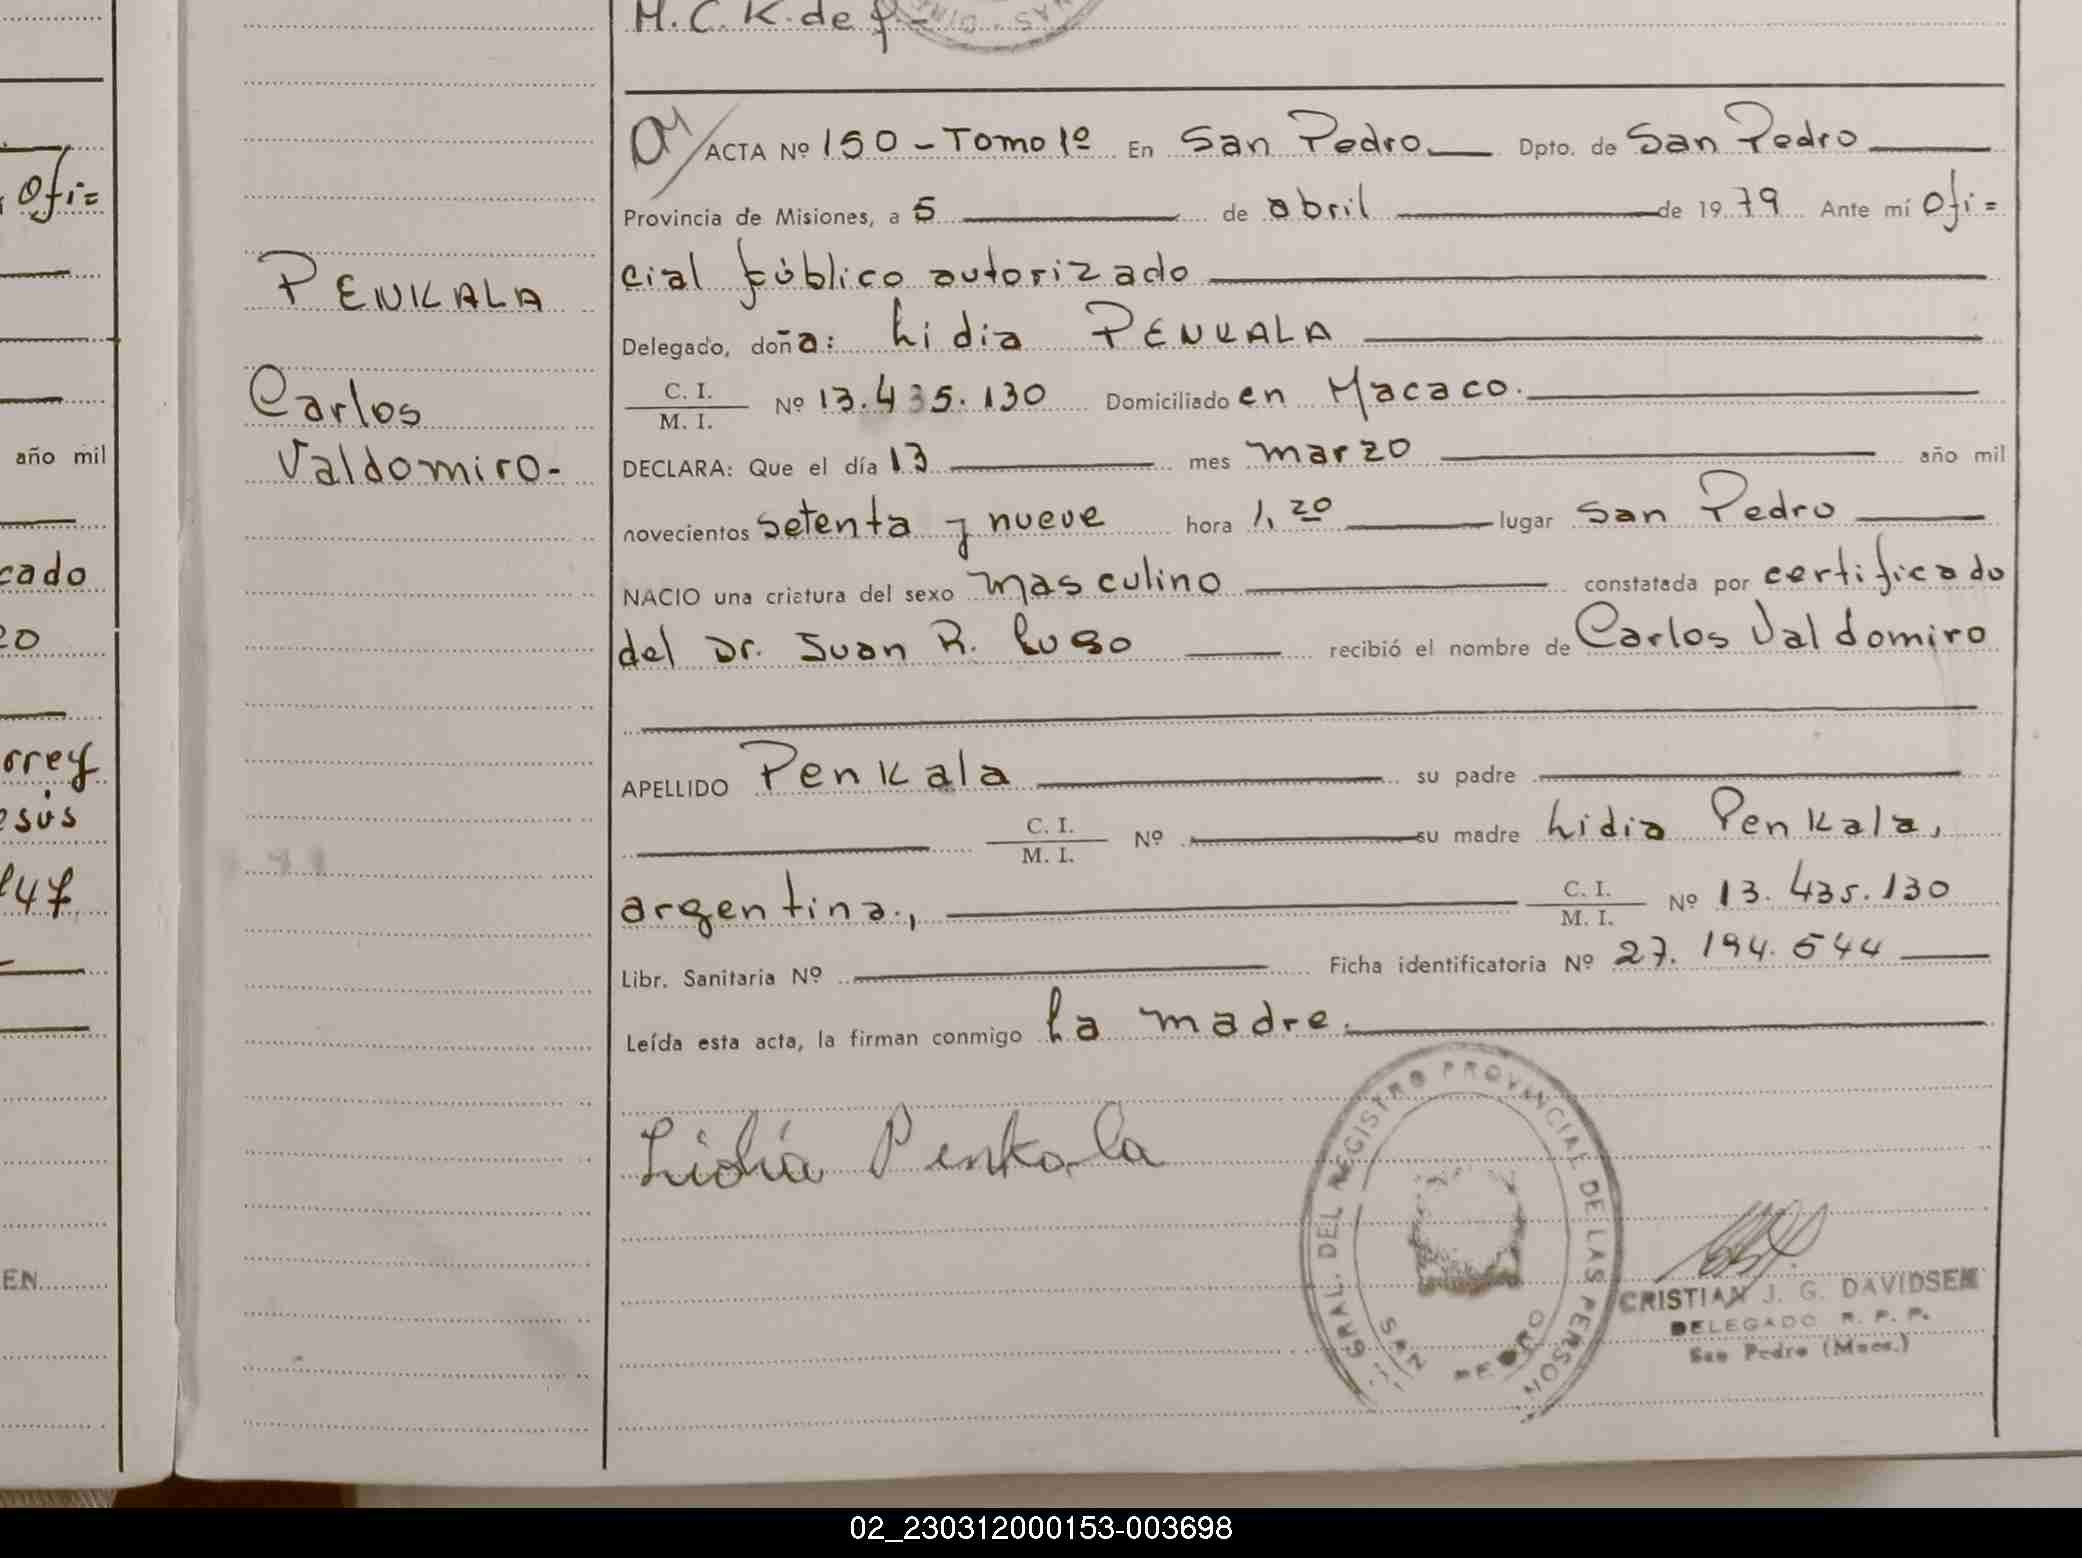 M. C. K. de f.-
Ofi=
año mil
cado
20
orrey
esús
147
EN
PENKALA
Carlos
Valdomiro-
ACTA Nº 150 - Tomo 1º En San Pedro Dpto. de San Pedro
Provincia de Misiones, a 5 de abril de 1979 Ante mí Ofi=
cial público autorizado
Delegado, doña: Lidia PENKALA
C. I.
M. I. Nº 13.435.130 Domiciliado en Macaco.
DECLARA: Que el día 13 mes marzo año mil
novecientos setenta y nueve hora 1,20 lugar San Pedro
NACIO una criatura del sexo masculino constatada por certificado
del Dr. Juan R. Lugo recibió el nombre de Carlos Valdomiro
APELLIDO Penkala su padre
C. I.
M. I. Nº su madre Lidia Penkala,
argentina., C. I.
M. I. Nº 13.435.130
Libr. Sanitaria Nº Ficha identificatoria Nº 27.194.544
Leída esta acta, la firman conmigo La madre.
Lidia Penkala
GRAL. DEL REGISTRO PROVINCIAL DE LAS PERSON
SAN PEDRO
CRISTIAN J. G. DAVIDSEN
DELEGADO R. P. P.
San Pedro (Mnes.)
02_230312000153-003698